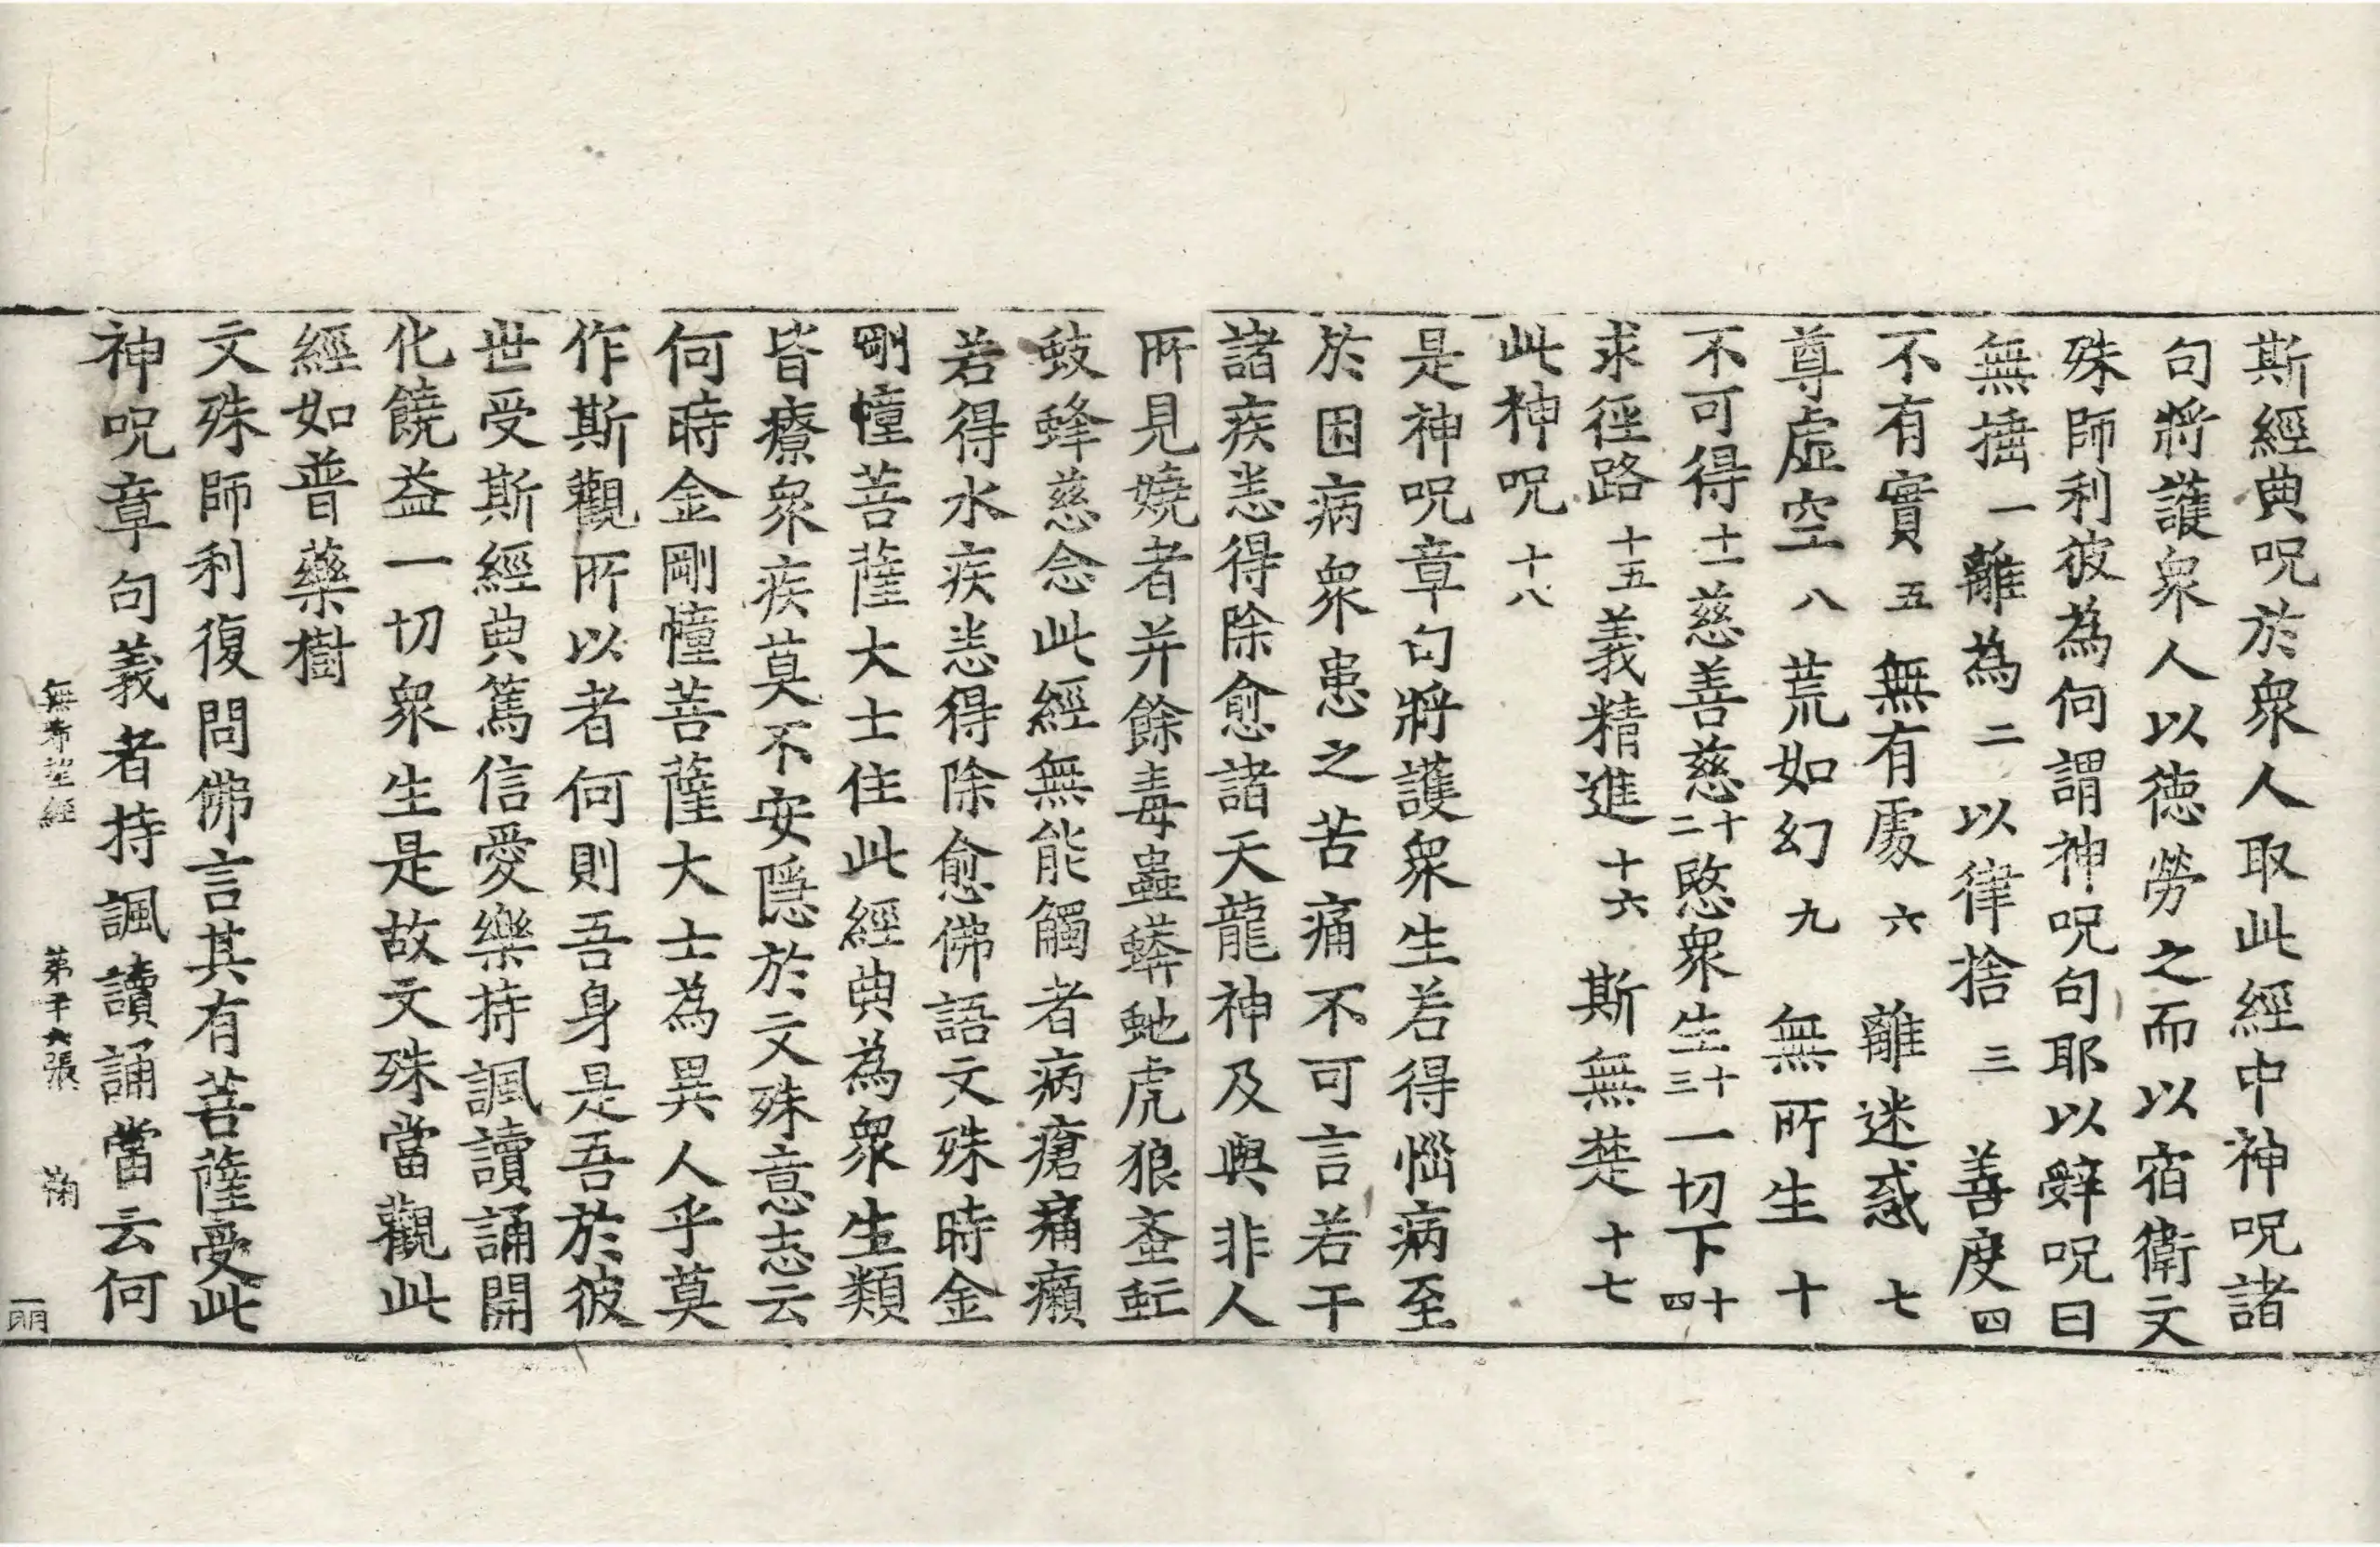 斯經典呪於衆人取此經中神呪諸
句將護衆人以德勞之而以宿衛文
殊師利彼為何謂神呪句耶以辭呪曰
無捶一離為二以律捨三善度四
不有實五無有處六離迷惑七
尊虛空八荒如幻九無所生十
不可得十一慈善慈十二愍衆生十三一切下十四
求徑路十五義精進十六斯無楚十七
此神呪十八
是神呪章句將護衆生若得惱病至
於困病衆患之苦痛不可言若干
諸疾恙得除愈諸天龍神及與非人
所見嬈者并餘毒蟲蟒虵虎狼蚉䖟
蚑蜂慈念此經無能觸者病瘡痛癩
若得水疾恙得除愈佛語文殊時金
剛幢菩薩大士住此經典為衆生類
皆療衆疾莫不安隱於文殊意志云
何時金剛幢菩薩大士為異人乎莫
作斯觀所以者何則吾身是吾於彼
世受斯經典篤信愛樂持諷讀誦開
化饒益一切衆生是故文殊當觀此
經如普藥樹
文殊師利復問佛言其有菩薩受此
神呪章句義者持諷讀誦當云何
無希望經 第十六張